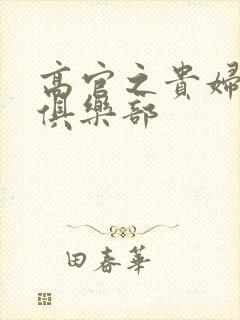 高官之貴婦
俱樂部
田春華